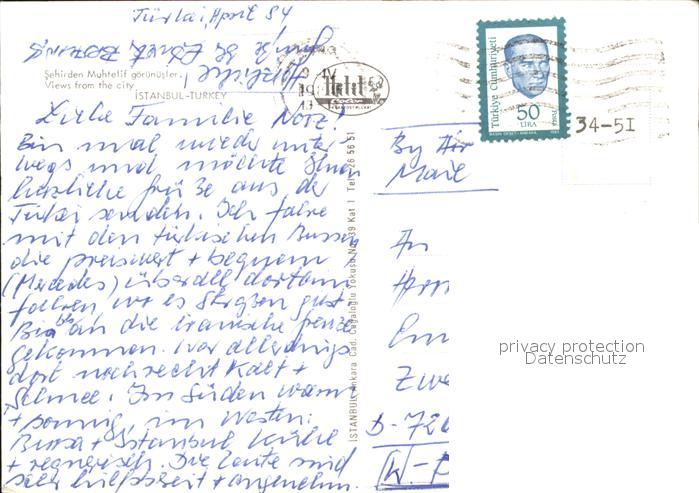 Türkei, April 84
Herzliche
Grüße Ihr
Şehirden Muhtelif görünüşler.
Views from the city
İSTANBUL-TURKEY
Liebe Familie Notz!
Bin mal wieder unter-
wegs und möchte Ihnen
herzliche Grüße aus der
Türkei senden. Ich fahre
mit den türkischen Bussen
die preiswert + bequem
(Mercedes) überall dorthin
fahren, wo es Straßen gibt.
Bin bis an die iranische Grenze
gekommen. War allerdings
dort noch recht kalt +
Schnee. Im Süden warm
+ sonnig, im Westen:
Bursa + Istanbul kühl
+ regnerisch. Die Leute sind
sehr hilfsbereit + angenehm.
İSTANBUL Ankara Cad. Cağaloğlu Yokuşu No. 39 Kat 1 Tel: 26 56 51
Türkiye Cumhuriyeti
50
LIRA
POSTA
34-51
By Air
Mail
An
Zwe
D-720
privacy protection
Datenschutz